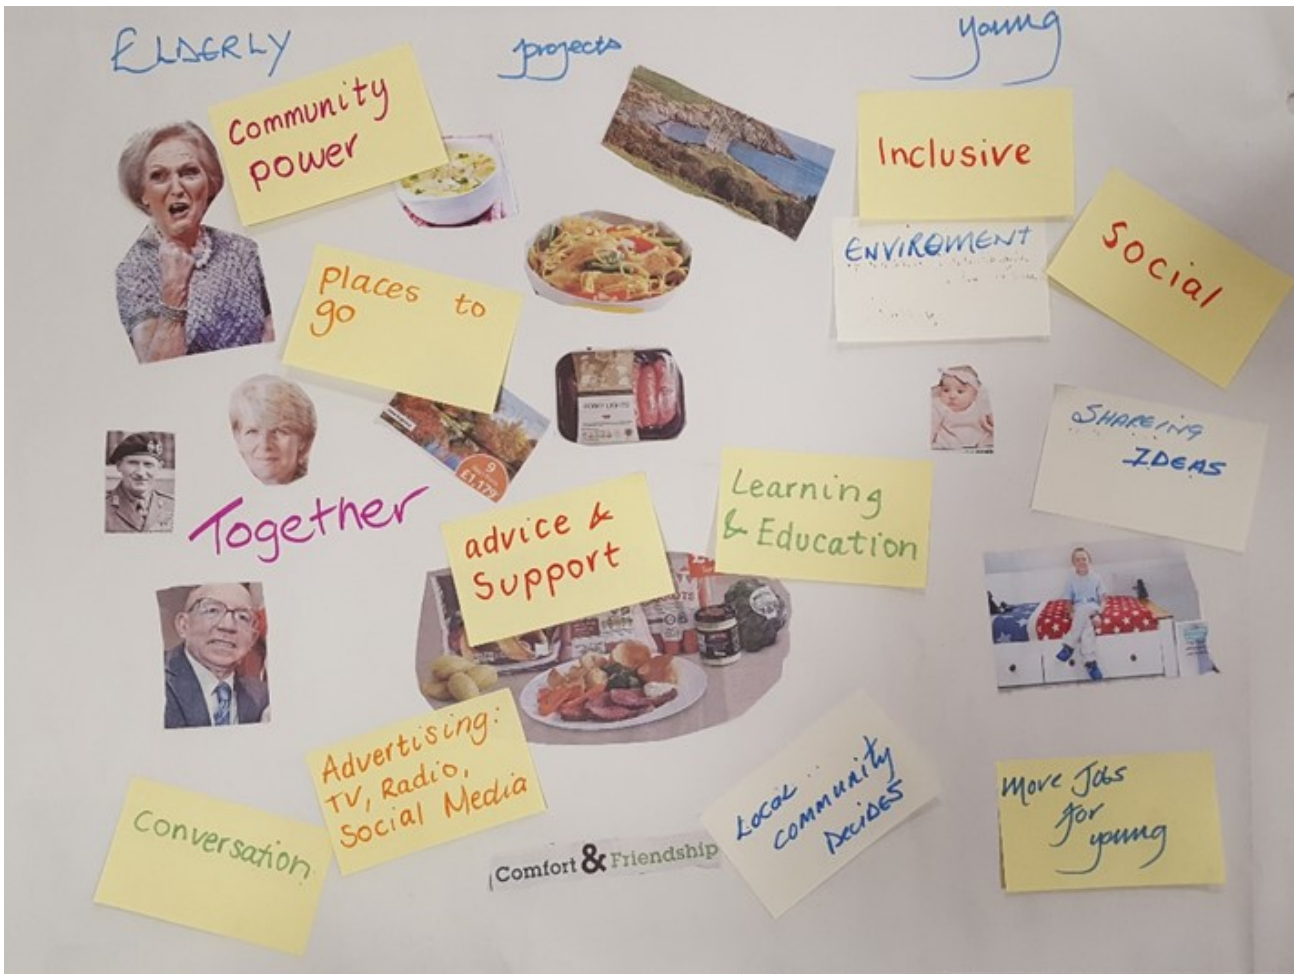 ELDERLY
projects
young
Community
power
Inclusive
ENVIROMENT
Social
places to
go
SHAREING
IDEAS
9
£1,179
Together
advice &
Support
Learning
& Education
Advertising:
TV, Radio,
Social Media
Conversation
Comfort & Friendship
LOCAL
COMMUNITY
DECIDES
More Jobs
for
young